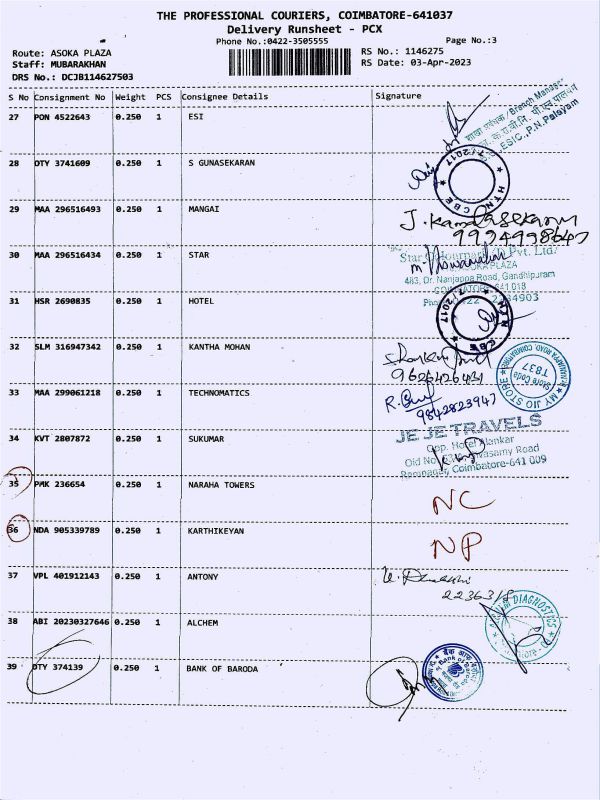 THE PROFESSIONAL COURIERS, COIMBATORE-641037
Delivery Runsheet - PCX
Phone No.:0422-3505555 Page No.:3
Route: ASOKA PLAZA RS No.: 1146275
Staff: MUBARAKHAN RS Date: 03-Apr-2023
DRS No.: DCJB114627503
S No Consignment No Weight PCS Consignee Details Signature
27 PON 4522643 0.250 1 ESI
Branch Manager
ESIC., P.N.Palayam
28 DTY 3741609 0.250 1 S GUNASEKARAN
7/2017 HTN CBE
29 MAA 296516493 0.250 1 MANGAI
J. Kamalasekaran
9994998647
30 MAA 296516434 0.250 1 STAR
Pvt. Ltd.
ASOKA PLAZA
483, Dr. Nanjappa Road, Gandhipuram
COIMBATORE-641 018
31 HSR 2690835 0.250 1 HOTEL
7/2017 HTN CBE
32 SLM 316947342 0.250 1 KANTHA MOHAN
9626426431
MY JIO STORE
Store Code
T837
33 MAA 299061218 0.250 1 TECHNOMATICS
9842823947
34 KVT 2807872 0.250 1 SUKUMAR
JE JE TRAVELS
Opp. Hotel Alankar
Old No. Road
Ramnagar, Coimbatore-641 009
35 PMK 236654 0.250 1 NARAHA TOWERS
NC
36 NDA 905339789 0.250 1 KARTHIKEYAN
NP
37 VPL 401912143 0.250 1 ANTONY
38 ABI 20230327646 0.250 1 ALCHEM
DIAGNOSTICS
39 DTY 374139 0.250 1 BANK OF BARODA
Bank of Baroda